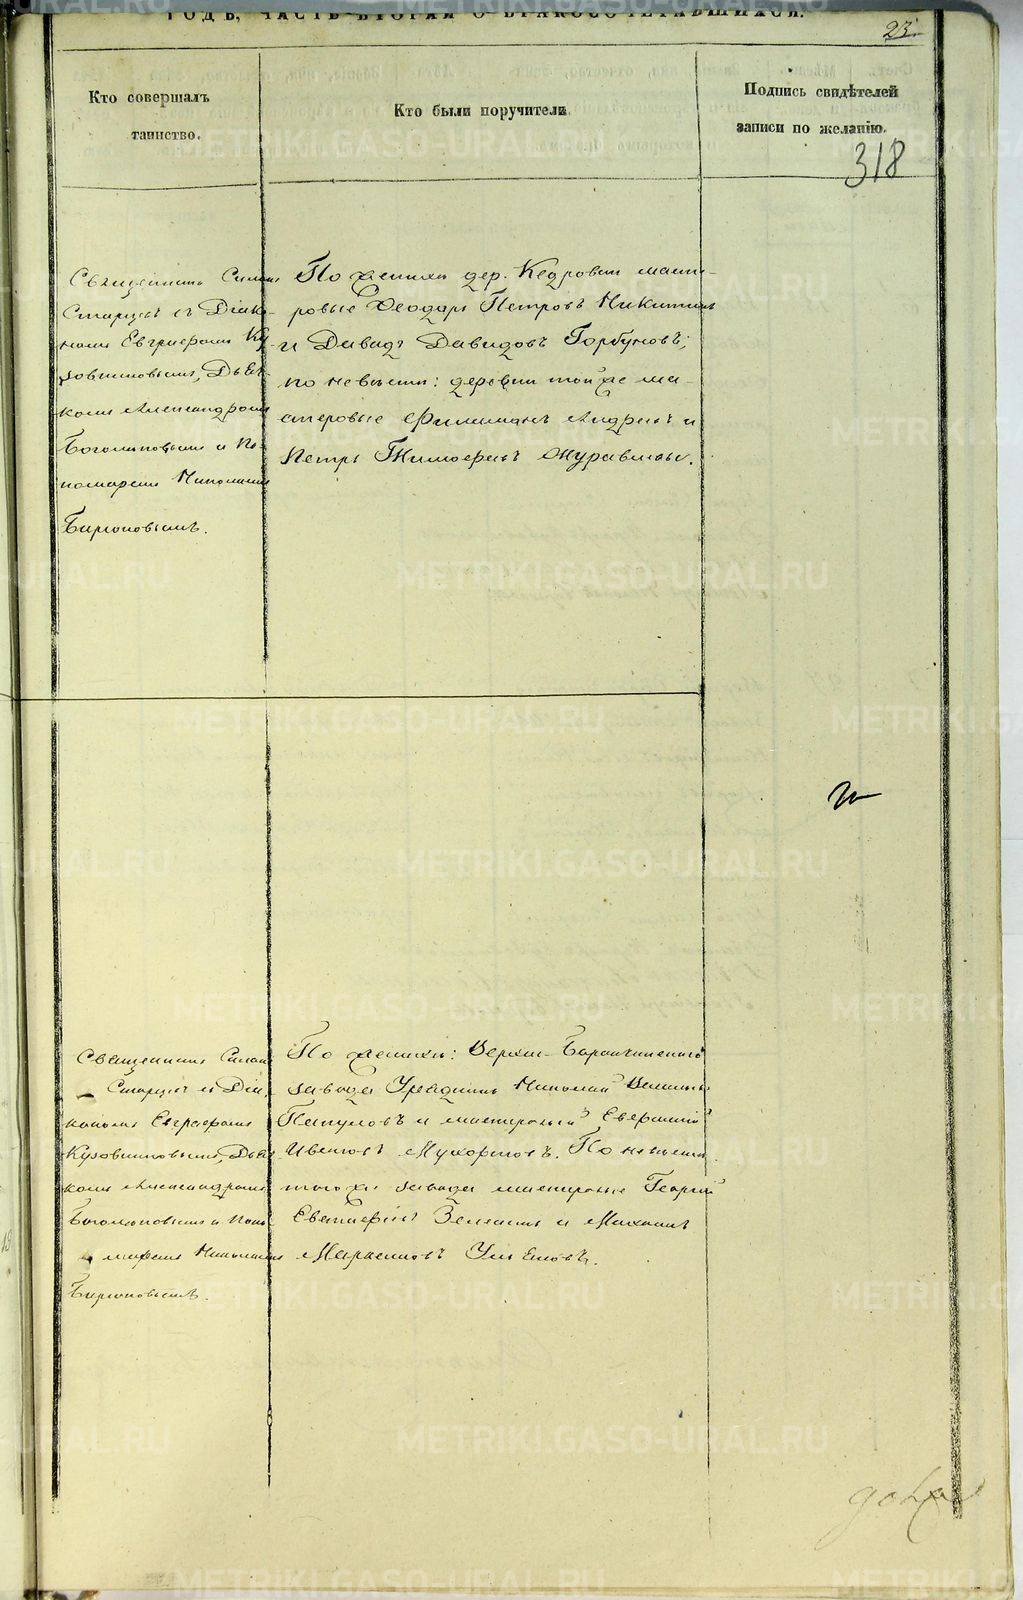 ГОДЪ, ЧАСТЬ ВТОРАЯ О БРАКОСОЧЕТАВШИХСЯ.
23.
Кто совершалъ
таинство.
Кто были поручители
Подпись свидѣтелей
записи по желанію.
318
Священникъ Симеон
Старцевъ съ Діако-
номъ Евграфомъ Ку-
зовниковымъ, Дьяч-
комъ Александромъ
Боголюповымъ и По-
номаремъ Николаемъ
Бирюковымъ.
По женихѣ дер. Кедровки масте-
ровые Ѳеодоръ Петровъ Никитинъ
и Давидъ Давидовъ Горбуновъ;
по невѣстѣ: деревни той же ма-
стеровые Филимонъ Андреевъ и
Петръ Тимоѳеевъ Журавлевы.
Священникъ Симеон
Старцевъ съ Діа-
кономъ Евграфомъ
Кузовниковымъ, Дьяч-
комъ Александромъ
Боголюповымъ и Поно-
маремъ Николаемъ
Бирюковымъ.
По женихѣ: Верхне-Баранчинскаго
завода Урядникъ Николай
и мастеровой
По невѣстѣ
того же завода мастеровые Георгій
Евстафіевъ и Михаилъ
METRIKI.GASO-URAL.RU